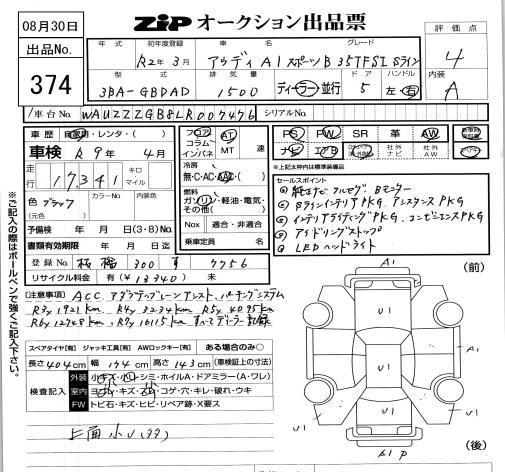 08月30日
ZiP オークション出品票
出品No.
374
年式 初年度登録 車名 グレード
R2年3月 アウディ A1 スポーツB 35TFSI Sライン
型式 排気量 ドア ハンドル
3BA-GBDAD 1500 ディーラー・並行 5 左・右
評価点
4
内装
A
車台No. WAUZZZGB8LR007476 シリアルNo.
車歴 自家用・レンタ・( )
車検 R9年4月
走行 17,341 キロ マイル
色 ブラック カラーNo. 内装色
(元色)
予備検 年 月 日(3・8)No.
書類有効期限 年 月 日迄
登録No. 板橋 300 す 7756
リサイクル料金 有(¥13340) 未
フロア コラム インパネ AT MT 速
冷房 無・C・AC・AAC( )
燃料 ガソリン・軽油・電気・その他( )
Nox 適合・非適合
乗車定員 名
PS PW SR 革 AW
ナビ エアB 社外ナビ 社外AW
↑上記太枠内は標準装備品
セールスポイント
① 純正ナビ フルセグ Bモニター
② Sラインインテリア PKG、アシスタンス PKG
③ インテリアライティング PKG、コンビニエンス PKG
④ アイドリングストップ
⑤ LEDヘッドライト
※ご記入の際はボールペンで強くご記入下さい。
(注意事項) ACC アダプティブレーンアシスト、パーキングシステム
R3y 1921km R4y 3234km R5y 4095km
R6y 12748km R7y 16115km すべてディーラー記録
スペアタイヤ[有] ジャッキ工具[有] AWロックキー[有] ある場合のみ○
長さ 404cm 幅 174cm 高さ 143cm (車検証上の寸法)
検査記入
外装 小キズ・小凹・シミ・ホイルA・ドアミラー(A・ワレ)
室内 ヨゴレ・キズ・スレ・コゲ・穴・キレ・破れ・ウキ
FW トビ石・キズ・ヒビ・リペア跡・X要ス
上面小U(99)
(前)
A1
U1
A1
U1
U1
U1
A1 P
(後)